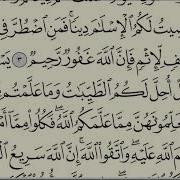 ضِيتُ لَكُمُ ٱلْإِسْلَٰمَ دِينًا ۚ فَمَنِ ٱضْطُرَّ فِى
لِّإِثْمٍ ۙ فَإِنَّ ٱللَّهَ غَفُورٌ رَّحِيمٌ ٣ يَسْـَٔ
أُحِلَّ لَكُمُ ٱلطَّيِّبَٰتُ ۙ وَمَا عَلَّمْتُم
تُعَلِّمُونَهُنَّ مِمَّا عَلَّمَكُمُ ٱللَّهُ ۖ فَكُلُوا۟ مِمَّآ
ٱللَّهِ عَلَيْهِ ۖ وَٱتَّقُوا۟ ٱللَّهَ ۚ إِنَّ ٱللَّهَ سَرِيعُ ٱلْ